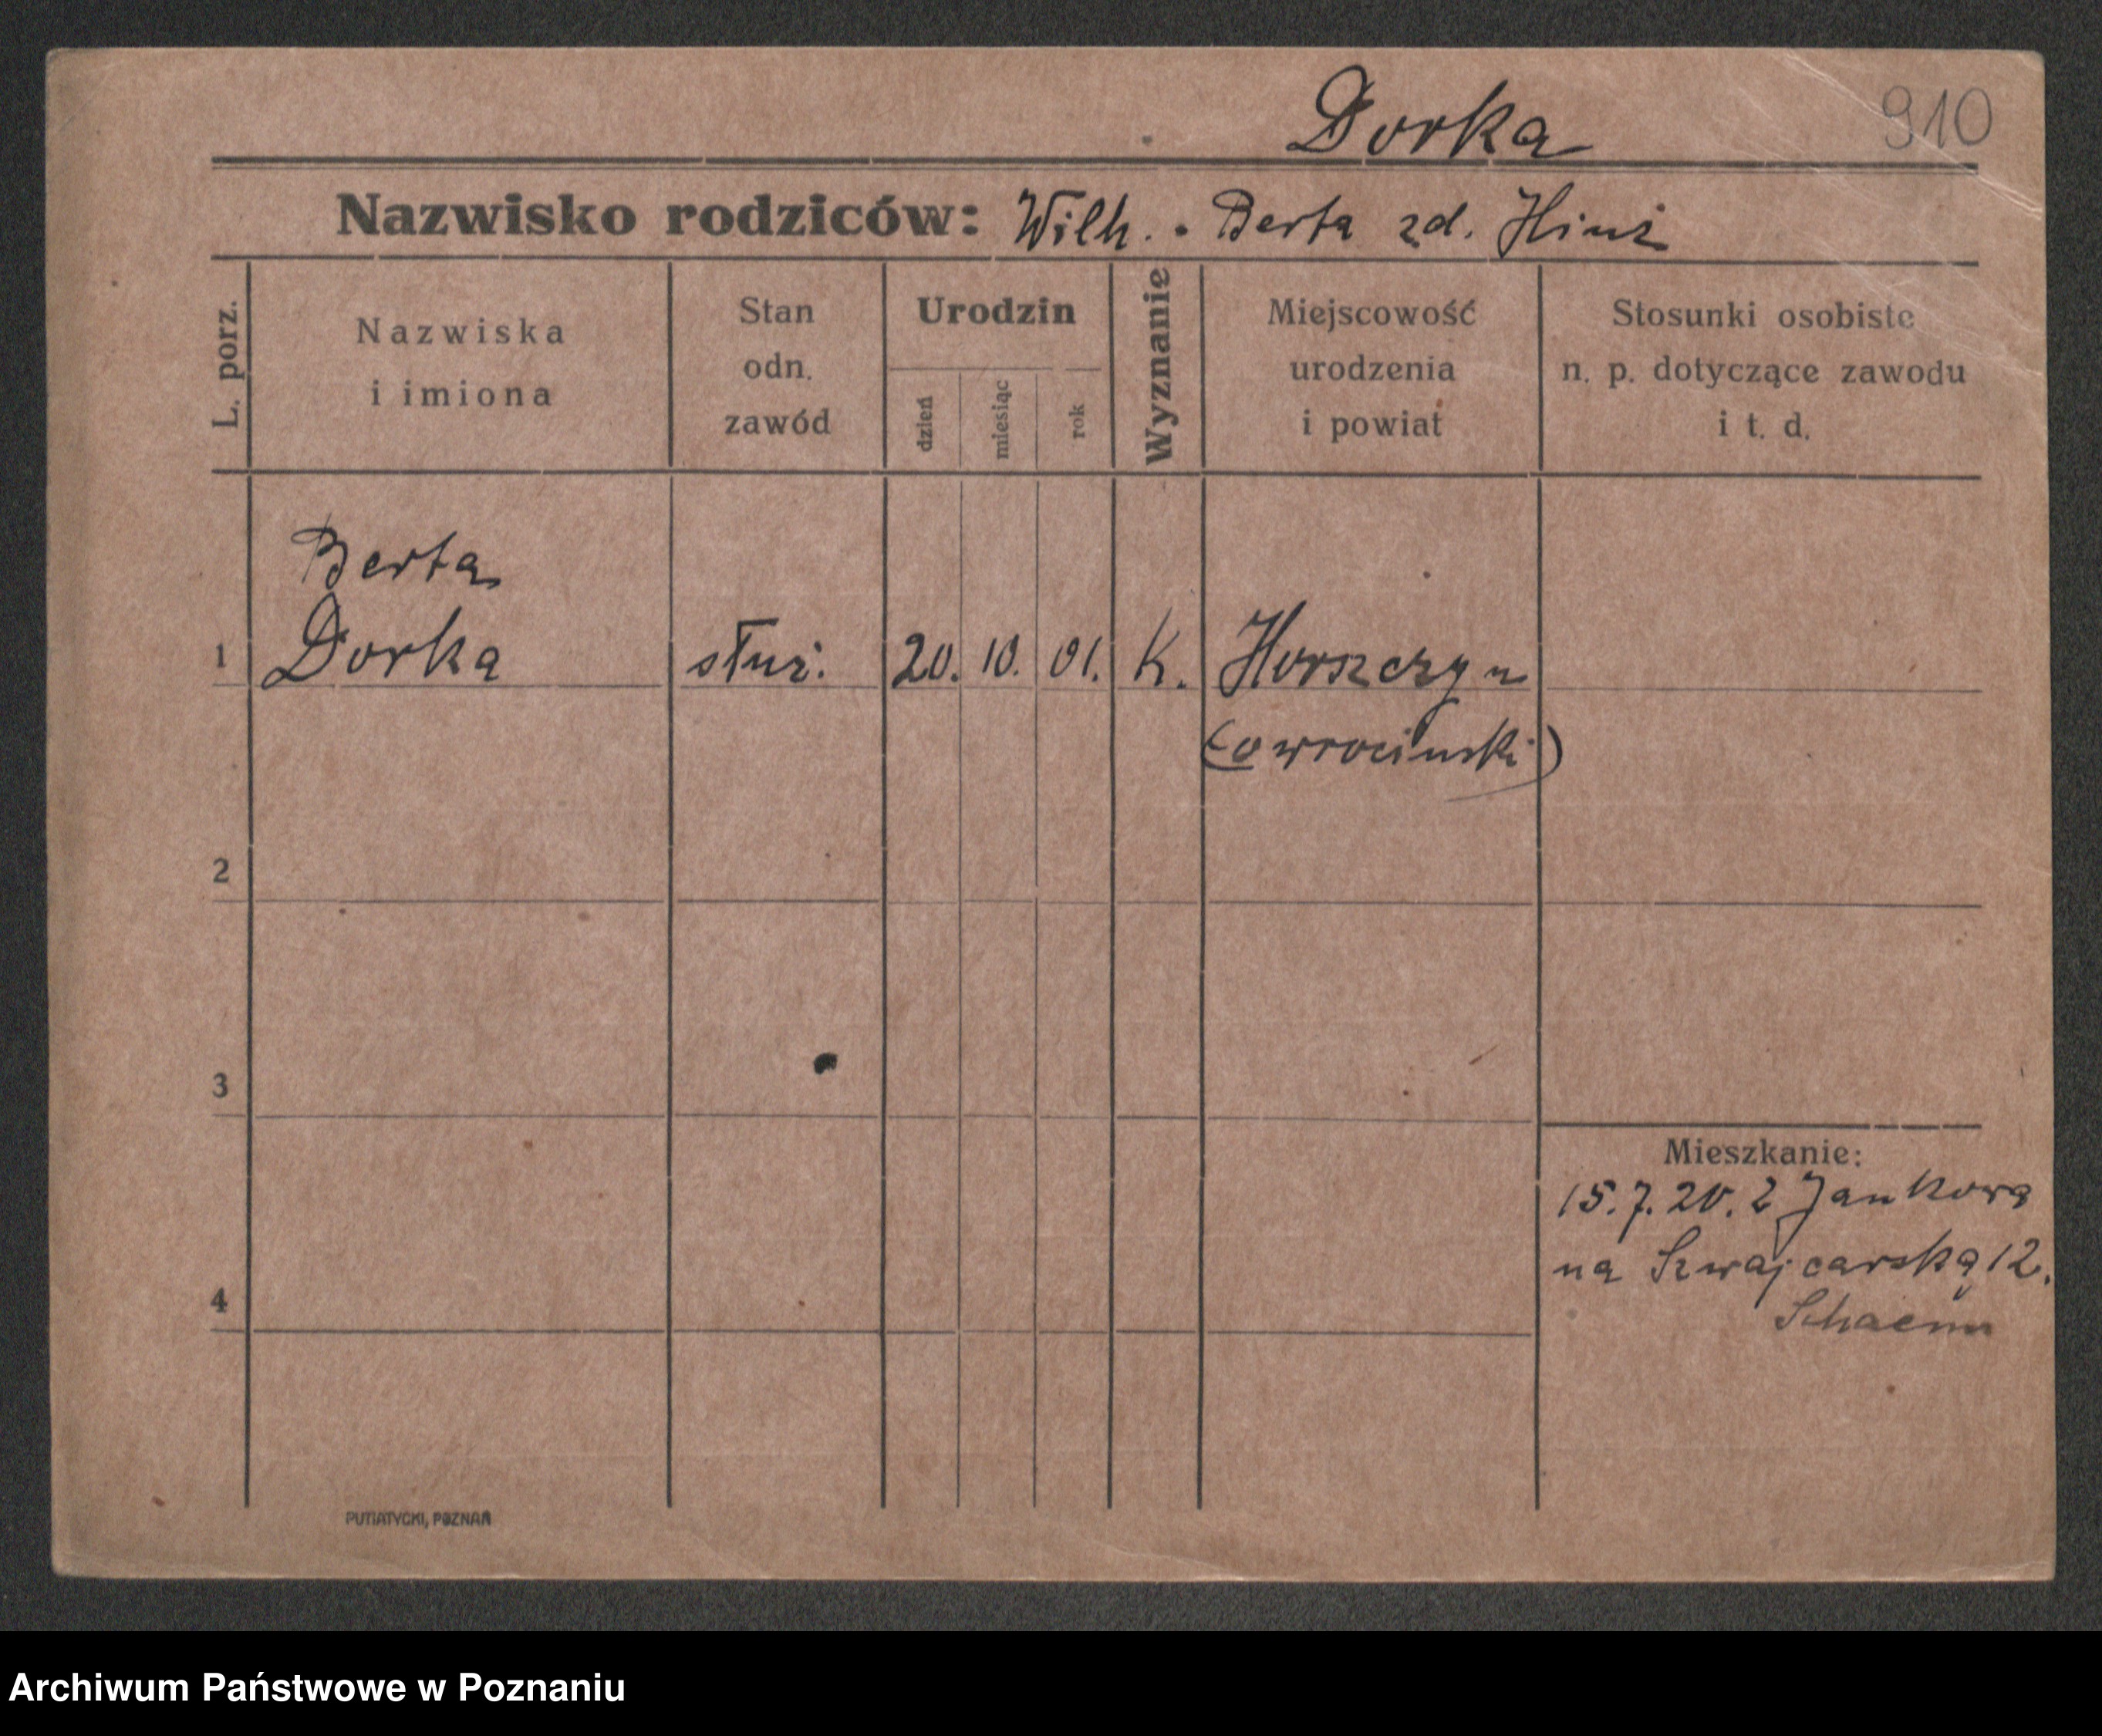 Dorka
910
Nazwisko rodziców: Wilh. . Berta zd. Hinz
L. porz.
Nazwiska
i imiona
Stan
odn.
zawód
Urodzin
dzień
miesiąc
rok
Wyznanie
Miejscowość
urodzenia
i powiat
Stosunki osobiste
n. p. dotyczące zawodu
i t. d.
Berta
1 Dorka służ. 20. 10. 01. K. Horszczyn
2
3
4
Mieszkanie:
15.7.20. z Jankowa
na Szwajcarską 12.
PUTIATYCKI, POZNAŃ
Archiwum Państwowe w Poznaniu